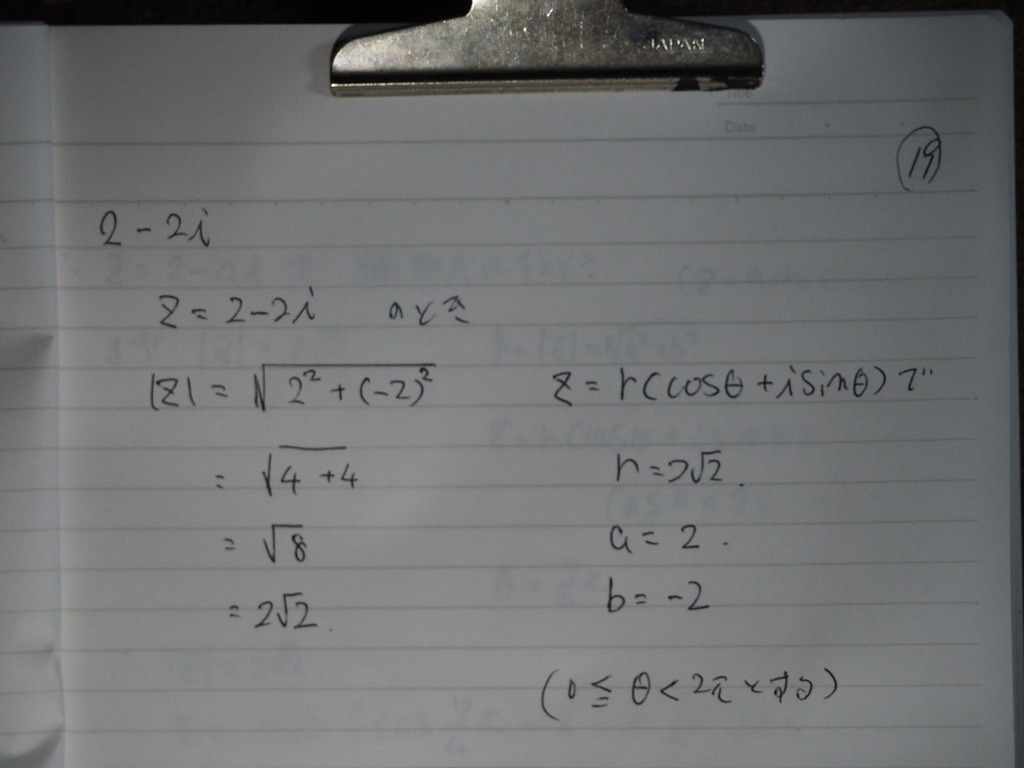 JAPAN
Date
19
2 - 2i
Z = 2 - 2i のとき
|Z| = √(2² + (-2)²)
Z = r(cosθ + i sinθ) で
= √(4 + 4)
r = 2√2.
= √8
a = 2.
= 2√2.
b = -2
(0 ≦ θ < 2π とする)